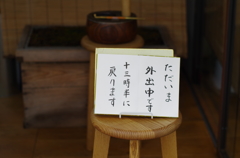 ただいま
外出中です
十三時半に
戻ります